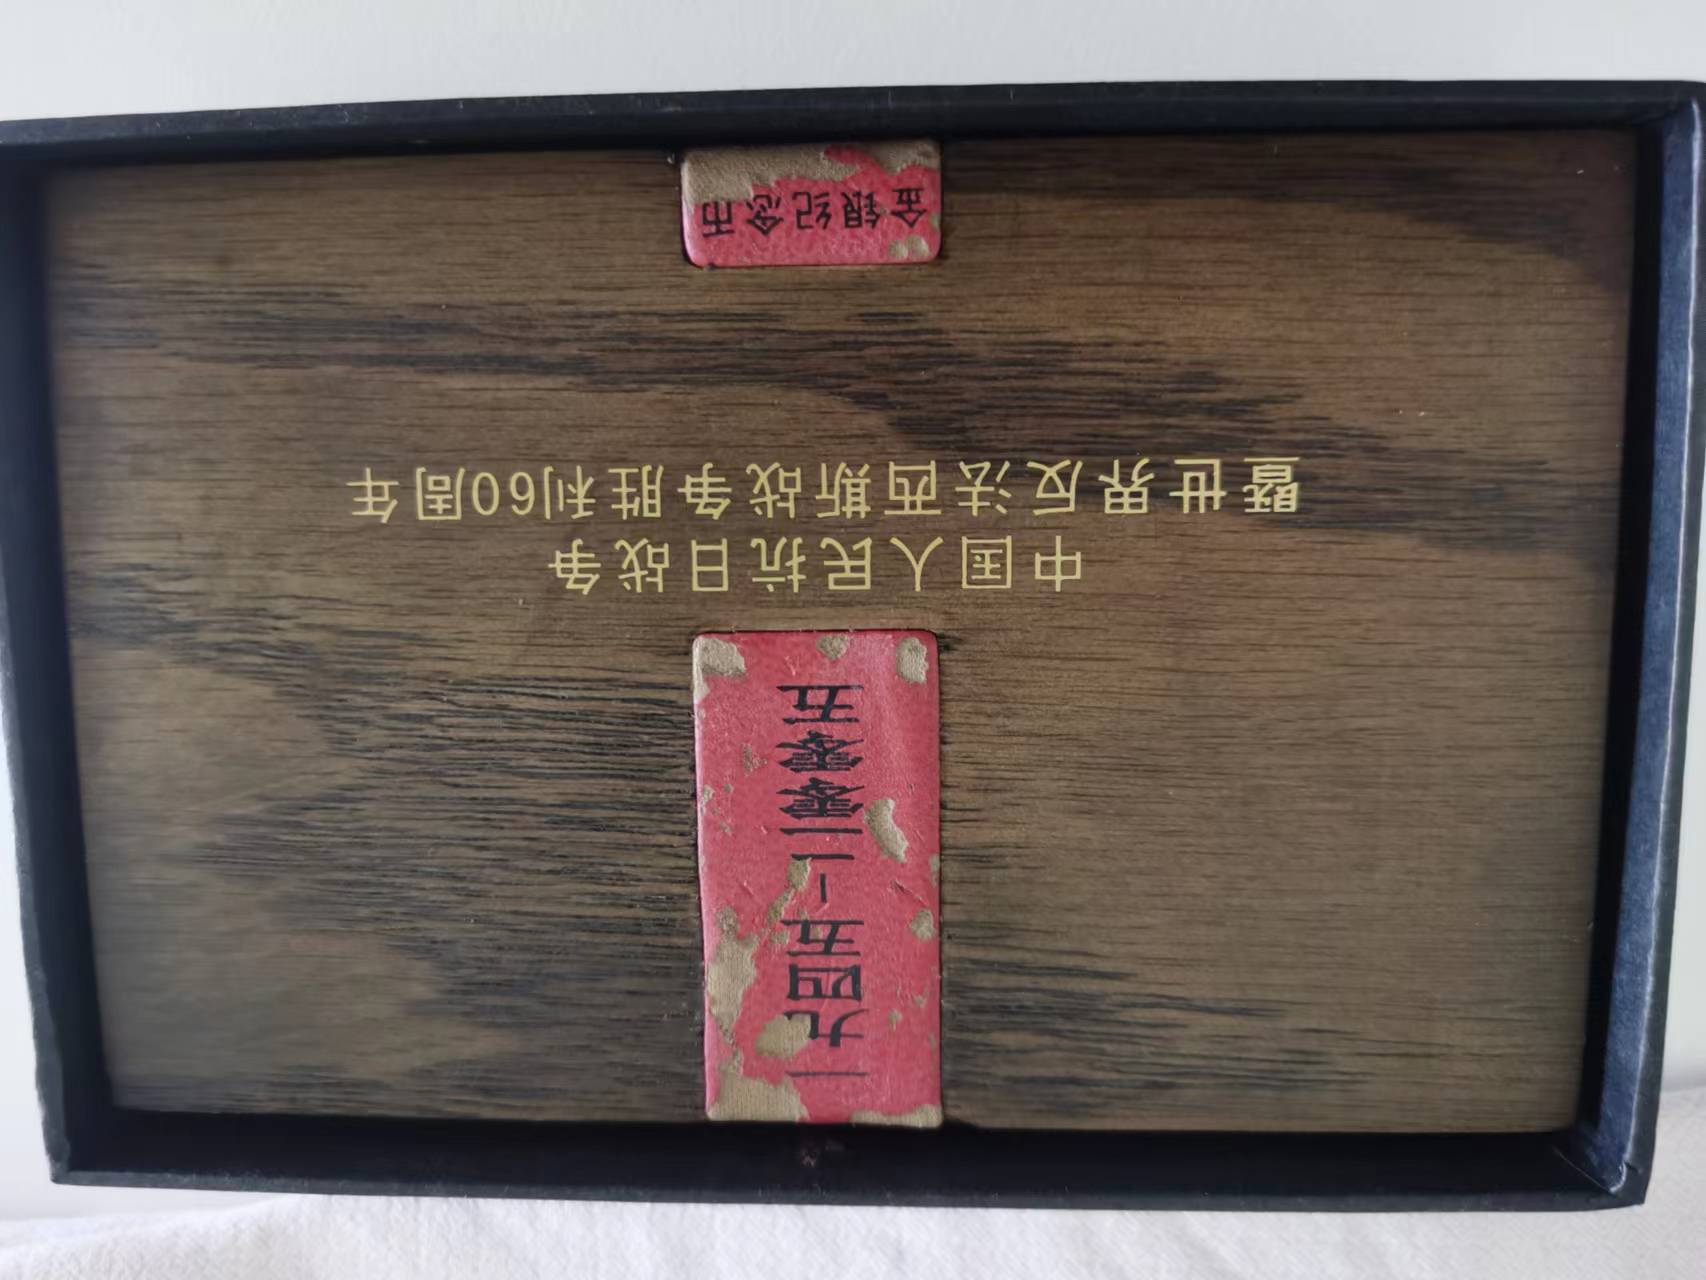 一九四五－二零零五
中国人民抗日战争
暨世界反法西斯战争胜利60周年
金银纪念币